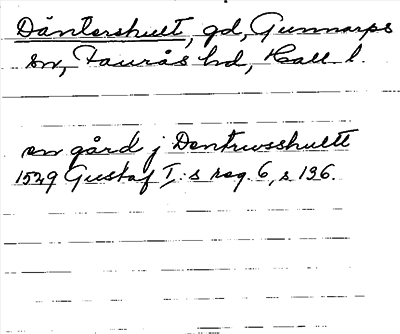 Däntershult, gd, Gunnarps
sn, Faurås hd, Hall. l.
en gård j Dentrwsshultt
1529 Gustaf I:s reg. 6, s 196.